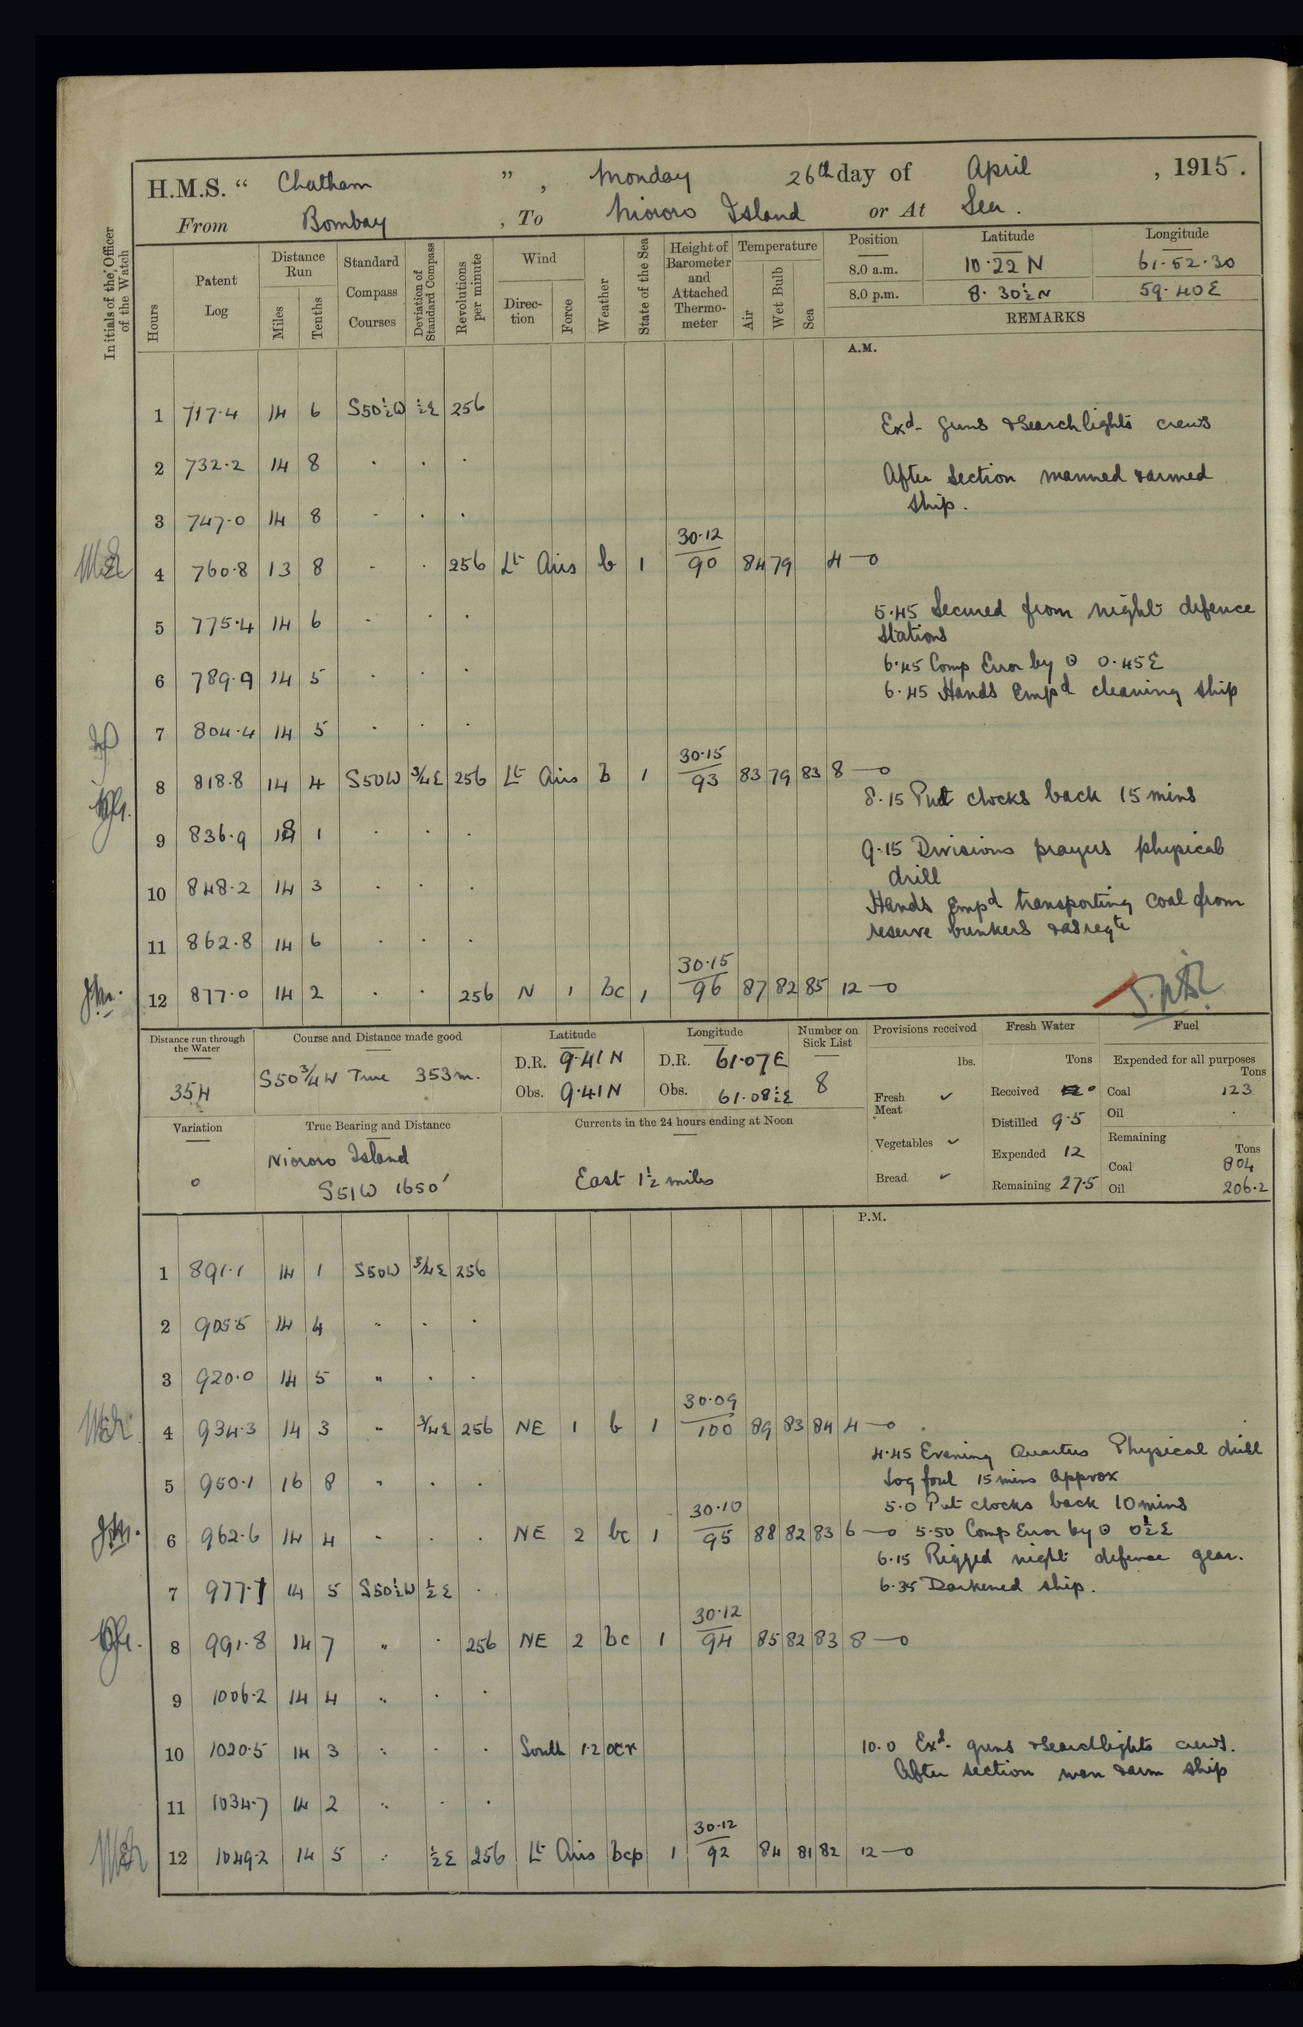 H.M.S. “ Chatham ” , Monday 26th day of April , 1915.
From Bombay , To Niororo Island or At Sea.
Initials of the Officer of the Watch
Hours
Patent Log
Distance Run
Miles
Tenths
Standard Compass Courses
Deviation of Standard Compass
Revolutions per minute
Wind
Direction
Force
Weather
State of the Sea
Height of Barometer and Attached Thermometer
Temperature
Air
Wet Bulb
Sea
Position Latitude Longitude
8.0 a.m. 10.22 N 61.52.30
8.0 p.m. 8.30½N 59.40E
REMARKS
A.M.
1 717.4 14 6 S50½W ½E 256
Exd. guns & searchlights crews
2 732.2 14 8 . . .
After section manned & armed
ship.
3 747.0 14 8 - . .
4 760.8 13 8 - . 256 Lt Airs b 1 30.12/90 84 79 4—0
5 775.4 14 6 . . .
5.45 Secured from night defence
stations
6.45 Comp Error by ⊙ 0.45E
6 789.9 14 5 . . .
6.45 Hands Empd cleaning ship
7 804.4 14 5 . . .
8 818.8 14 4 S50W ¾E 256 Lt Airs b 1 30.15/93 83 79 83 8—0
8.15 Put clocks back 15 mins
9 836.9 18 1 . . .
9.15 Divisions prayers physical
drill
10 848.2 14 3 . . .
Hands Empd transporting coal from
reserve bunkers & as reqte
11 862.8 14 6 . . .
12 877.0 14 2 . . 256 N 1 bc 1 30.15/96 87 82 85 12—0
Distance run through the Water
354
Course and Distance made good
S50¾W True 353m.
Latitude
D.R. 9.41N
Obs. 9.41N
Longitude
D.R. 61.07E
Obs. 61.08½E
Number on Sick List
8
Provisions received
lbs.
Fresh Meat ✓
Vegetables ✓
Bread ✓
Fresh Water
Tons
Received 0
Distilled 9.5
Expended 12
Remaining 27.5
Fuel
Expended for all purposes
Tons
Coal 123
Oil .
Remaining
Tons
Coal 804
Oil 206.2
Variation
0
True Bearing and Distance
Niororo Island
S51W 1650'
Currents in the 24 hours ending at Noon
East 1½ miles
P.M.
1 891.1 14 1 S50W ¾E 256
2 905.5 14 4 " . .
3 920.0 14 5 " . .
4 934.3 14 3 " ¾E 256 NE 1 b 1 30.09/100 89 83 84 4—0
4.45 Evening Quarters Physical drill
5 950.1 16 8 " . .
Log foul 15 mins approx
5.0 Put clocks back 10 mins
6 962.6 14 4 - . . NE 2 bc 1 30.10/95 88 82 83 6—0 5.50 Comp Error by ⊙ 0½E
6.15 Rigged night defence gear.
7 977.1 14 5 S50½W ½E .
6.35 Darkened ship.
8 991.8 14 7 " . 256 NE 2 bc 1 30.12/94 85 82 83 8—0
9 1006.2 14 4 " . .
10 1020.5 14 3 " . . South 1.2 ocr
10.0 Exd. guns & searchlights crews.
After section man & arm ship
11 1034.7 14 2 " . .
12 1049.2 14 5 " ½E 256 Lt Airs bcp 1 30.12/92 84 81 82 12—0